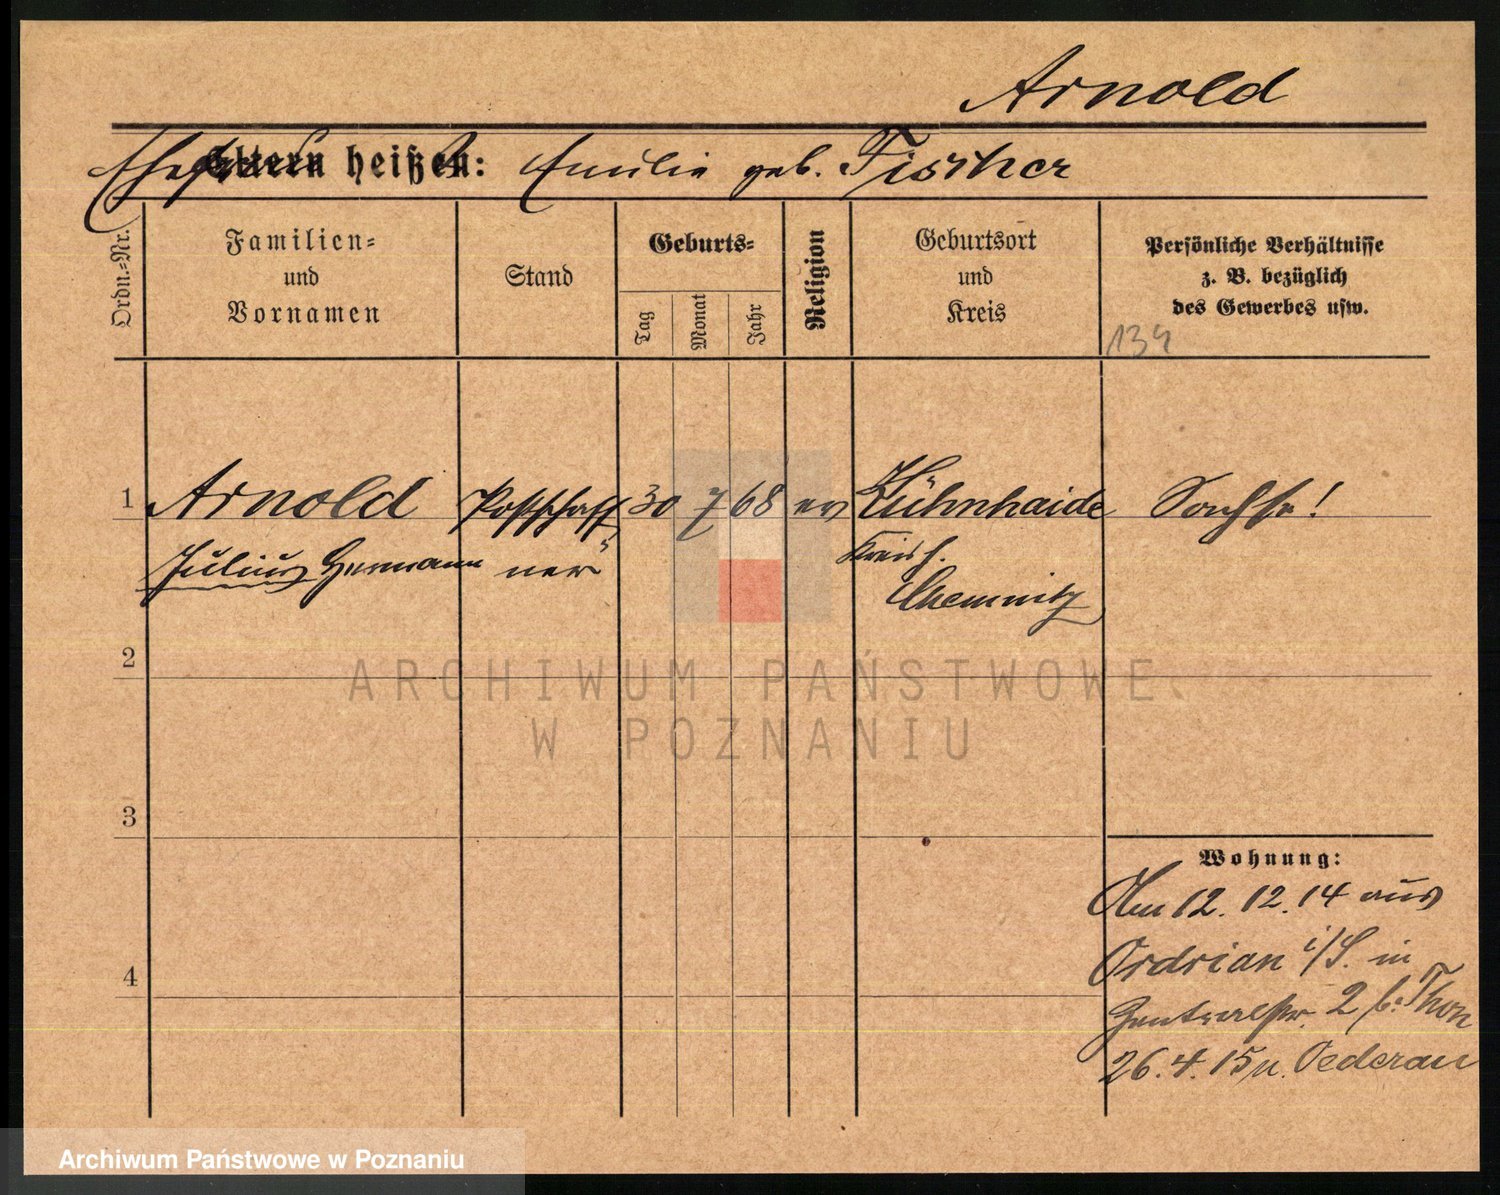 Arnold
Ehefrau Eltern heißen: Emilie geb. Fischer
Ordn.-Nr.
Familien-
und
Vornamen
Stand
Geburts-
Tag
Monat
Jahr
Religion
Geburtsort
und
Kreis
Persönliche Verhältnisse
z. B. bezüglich
des Gewerbes usw.
134
1 Arnold Postschaff 30 7 68 ev Kühnhaide Sachse!
Julius Hermann ner Kreish.
Chemnitz
2
3
4
Wohnung:
Am 12.12.14 aus
i/S. in
Zentralstr. 2 b. Thon
26.4.15 n. Oederan
ARCHIWUM PAŃSTWOWE
W POZNANIU
Archiwum Państwowe w Poznaniu